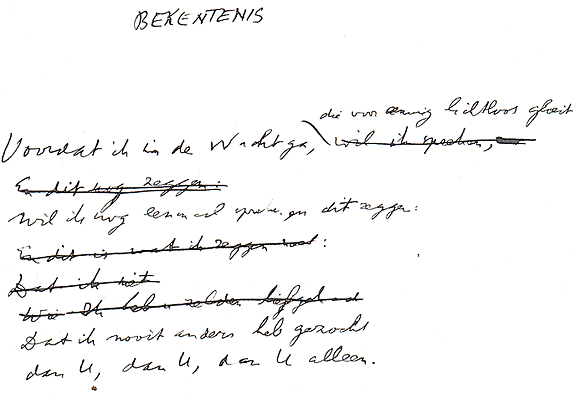 BEKENTENIS
die voor eeuwig lichtloos gloeit
Voordat ik in de Nacht ga, wil ik spreken,
En dit nog zeggen:
wil ik nog eenmaal spreken, en dit zeggen:
En dit is wat ik zeggen :
Dat ik niet
ik heb u zelden liefgehad
Dat ik nooit anders heb gezocht
dan U, dan U, dan U alleen.